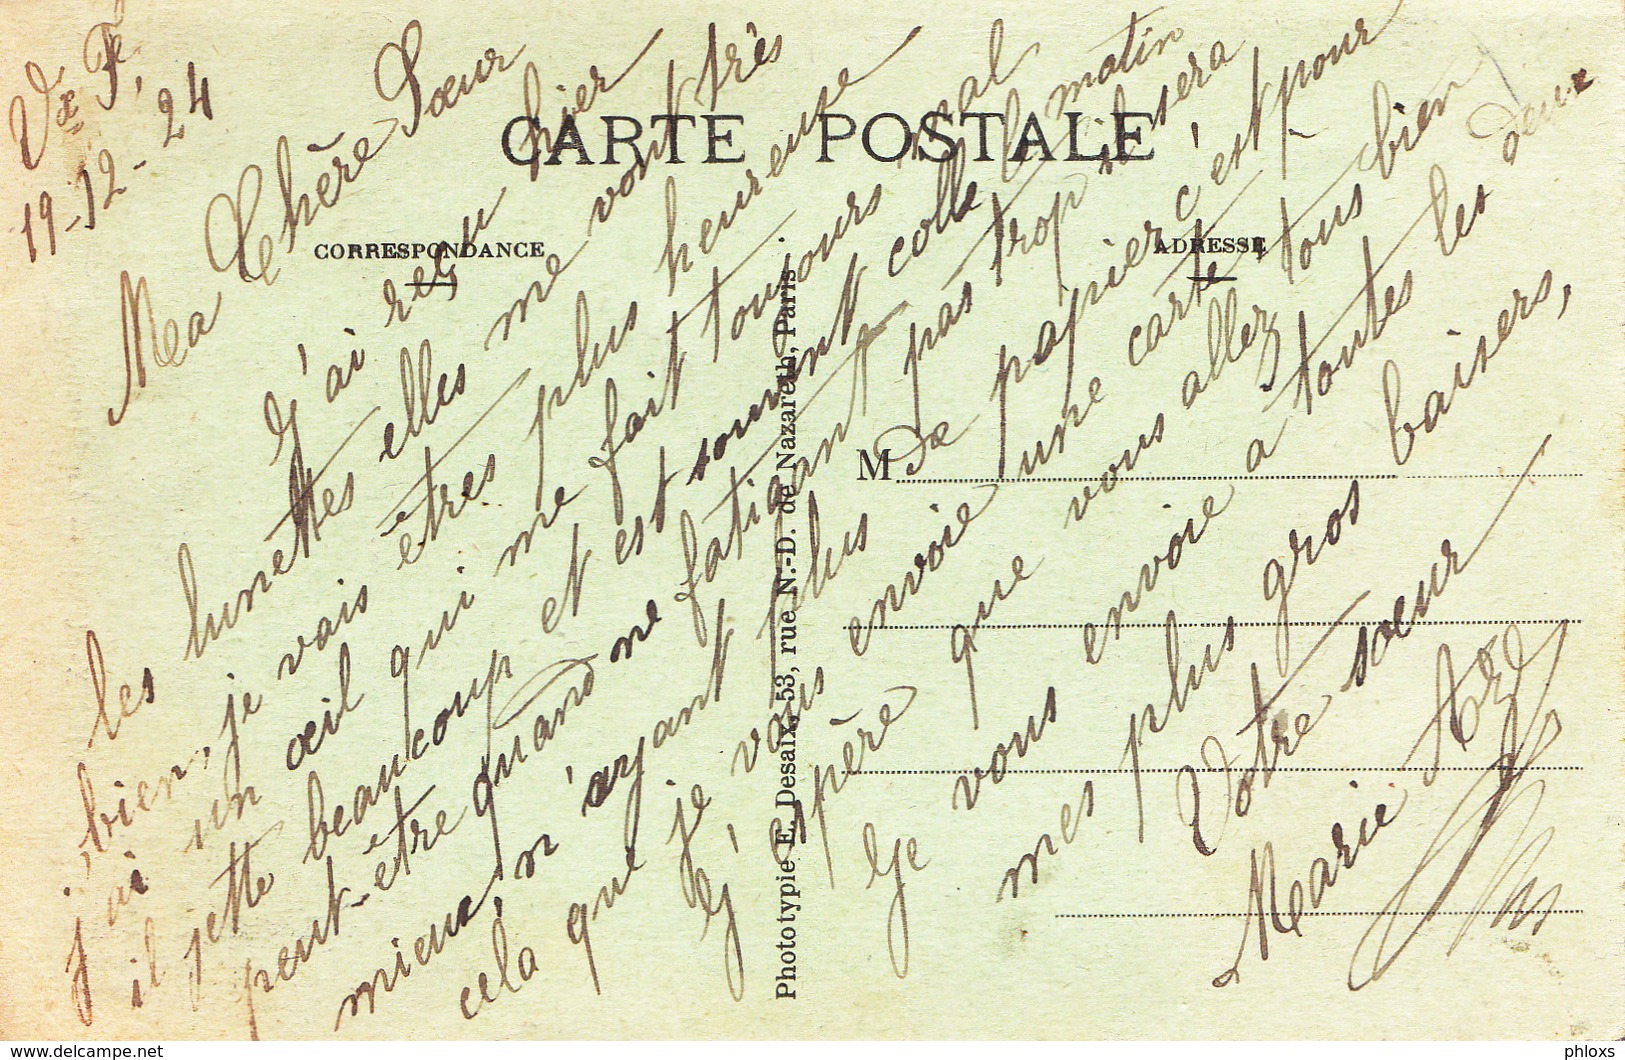 19-12-24
CARTE POSTALE
CORRESPONDANCE
ADRESSE
M
Phototypie E. Desaix, 53, rue N.-D. de Nazareth, Paris
Ma Chère Sœur
J'ai reçu hier
les lunettes elles me vont très
bien, je vais êtres plus heureuse
j'ai un œil qui me fait toujours mal
il jette beaucoup et est souvent collé le matin
peut-être quand ne fatigant pas trop il sera
mieux, n'ayant plus de papier c'est pour
cela que je vous envoie une carte
J'espère que vous allez tous bien
Je vous envoie a toutes les deux
mes plus gros baisers,
Votre sœur
Marie
www.delcampe.net
phloxs